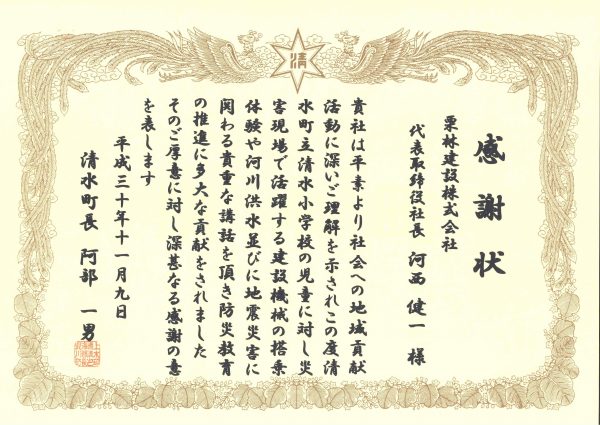 感謝状
栗林建設株式会社
代表取締役社長 河西健一様
貴社は平素より社会への地域貢献
活動に深いご理解を示されこの度清
水町立清水小学校の児童に対し災
害現場で活躍する建設機械の搭乗
体験や河川洪水並びに地震災害に
関わる貴重な講話を頂き防災教育
の推進に多大な貢献をされました
そのご厚意に対し深甚なる感謝の意
を表します
平成三十年十一月九日
清水町長 阿部一男